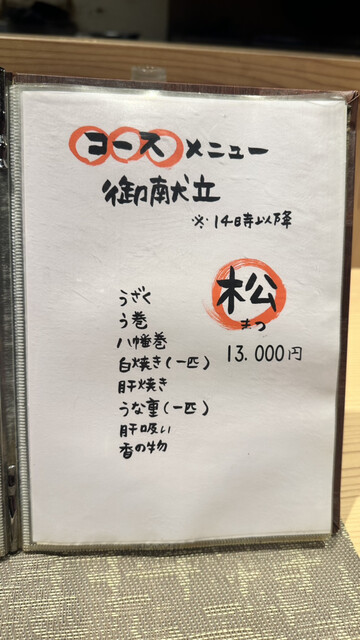 コースメニュー
御献立
※14時以降
松
まつ
13.000円
うざく
う巻
八幡巻
白焼き(一匹)
肝焼き
うな重(一匹)
肝吸い
香の物